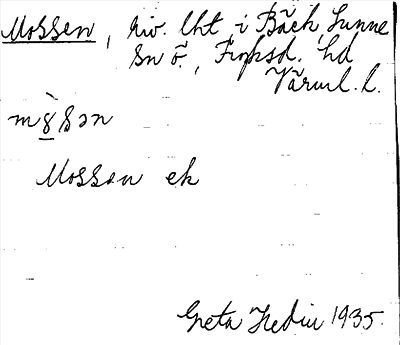 Mossen, riv. lht i Bäck Sunne
sn ö., Fryksd. hd
Värml. l.
m8̀sən
Mossen ek
Greta Hedin 1935.